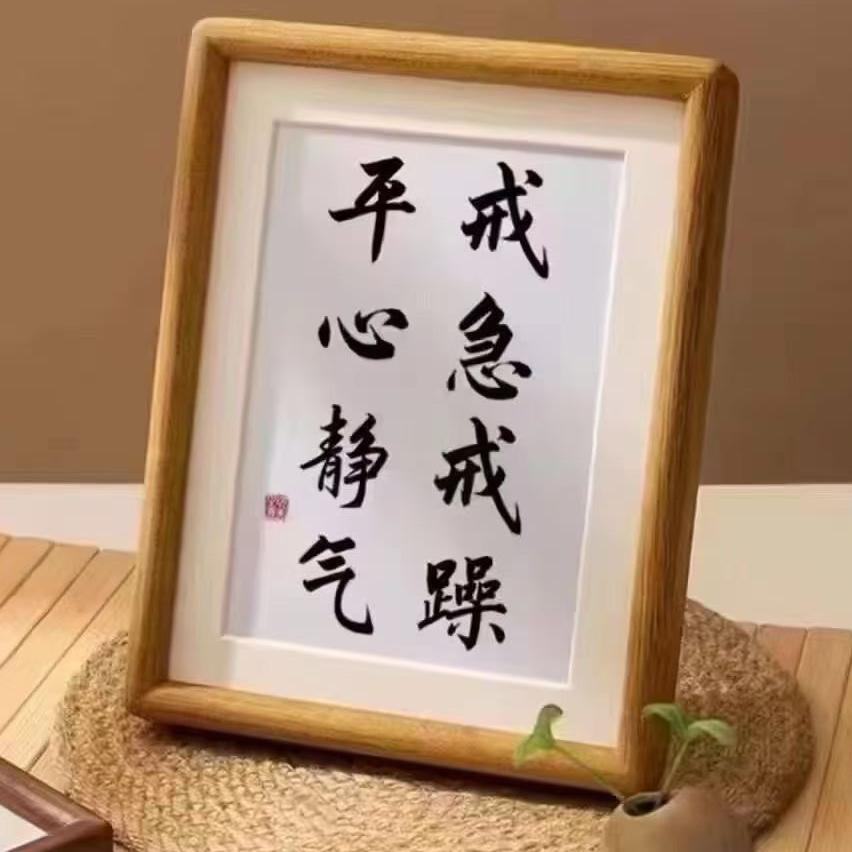 戒急戒躁
平心静气